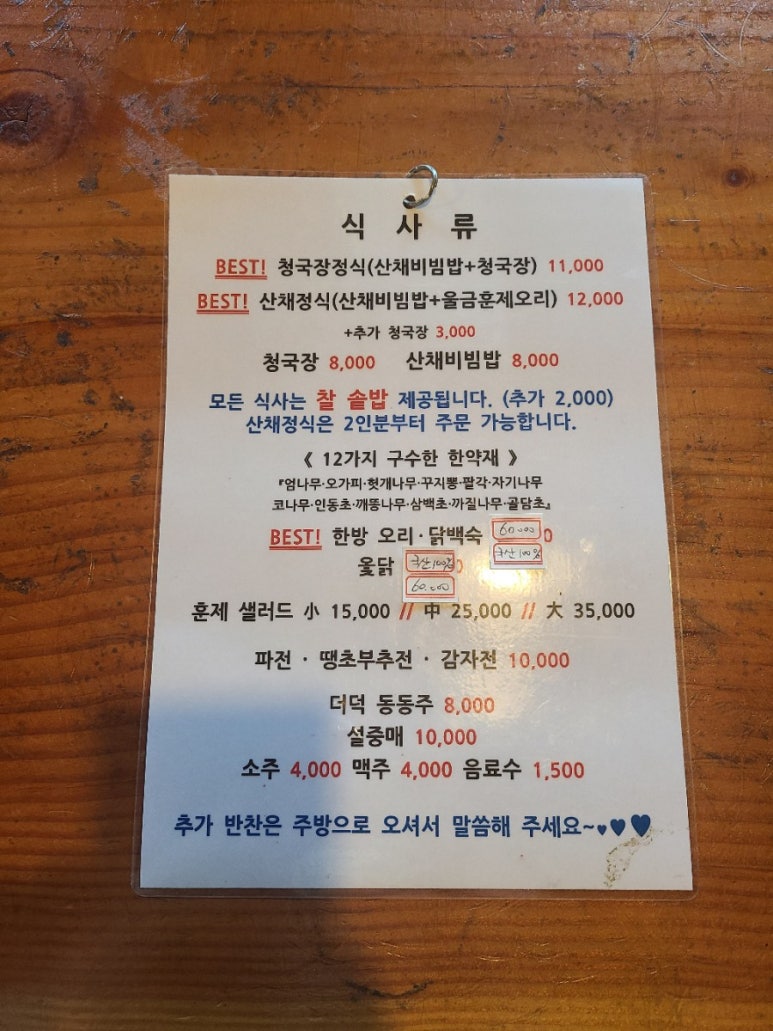 식 사 류
BEST! 청국장정식(산채비빔밥+청국장) 11,000
BEST! 산채정식(산채비빔밥+울금훈제오리) 12,000
+추가 청국장 3,000
청국장 8,000 산채비빔밥 8,000
모든 식사는 찰 솥밥 제공됩니다. (추가 2,000)
산채정식은 2인분부터 주문 가능합니다.
《 12가지 구수한 한약재 》
『엄나무·오가피·헛개나무·꾸지뽕·팔각·자기나무
코나무·인동초·깨똥나무·삼백초·까질나무·골담초』
BEST! 한방 오리·닭백숙 60.000
국산 100%
옻닭 국산 100%
60.000
훈제 샐러드 小 15,000 // 中 25,000 // 大 35,000
파전 · 땡초부추전 · 감자전 10,000
더덕 동동주 8,000
설중매 10,000
소주 4,000 맥주 4,000 음료수 1,500
추가 반찬은 주방으로 오셔서 말씀해 주세요~♥♥♥